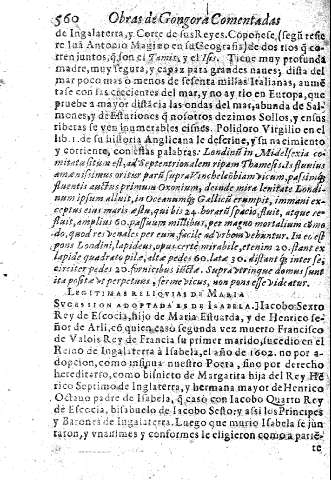 560 Obras de Gongora Comentadas
de Inglaterra, y Corte de sus Reyes. Cōponese, (segū refie
re Iuā Antonio Magino en su Geografia) de dos rios q̄ co
rren juntos, q̄ son el Tamis, y el Isis. Tiene muy profunda
madre, muy segura, y capaz para grandes naues; dista del
mar poco mas o menos de sesenta millas Italianas, aumē
tase con las crecientes del mar, y no ay rio en Europa, que
pruebe a mayor distācia las ondas del mar, abunda de Sal-
mones, y de Esturiones q̄ nosotros dezimos Sollos, y en sus
riberas se vēn inumerables cisnes. Polidoro Virgilio en el
lib. 1. de su historia Anglicana le descriue, y su nacimiento
y corriente, con estas palabras: Londinū in Midelsexia co-
mitatu situm est, ad Septentrionalem ripam Thamesis. Is fluuius
amœnissimus oritur parū supra Vinchelcōbiam vicum, pasinq̄
fluentis auctus primum Oxonium, deinde mira lenitate Londi-
num ipsum alluit, in Oceanumq̄ Gallicū erumpit, immani ex-
ceptus eius maris æstu, qui bis 24. horarū spacio, fluit, atque re-
fluit, amplius 60. passuum millibus, per magno mortalium cōmo
do, quod res venales per eum, facile ad vrbem vehuntur. In eo est
pons Londini, lapideus, opus certè mirabile, etenim 20. stant ex
lapide quadrato pilæ, altæ pedes 60. latæ 30. distant q̄ inter se,
circiter pedes 20. fornicibus iūctæ. Supra vtrinque domus sunt
ita positæ vt perpetuus, ferme vicus, non pons esse videatur.
LEGITIMAS RELIQVIAS DE MARIA
SVCESSION ADOPTADA ES DE ISABELA. Iacobo Sexto
Rey de Escocia, hijo de Maria Estuarda, y de Henrico Se-
ñor de Arli, cō quien caso segunda vez muerto Francisco
de Valois Rey de Francia su primer marido, sucedio en el
Reino de Inglaterra à Isabela, el año de 1602. no por a-
dopcion, como insigna nuestro Poeta, sino por derecho
hereditario, como bisnicto de Margarita hija del Rey Hē
rico Septimo de Inglaterra, y hermana mayor de Henrico
Octauo padre de Isabela, q̄ casò con Iacobo Quarto Rey
de Escocia, bisabuelo de Iacobo Sesto: y assi los Principes
y Barones de Inglaterra. Luego que murio Isabela se jun
taron, y vnanimes y conformes le eligieron como a pariē-
te